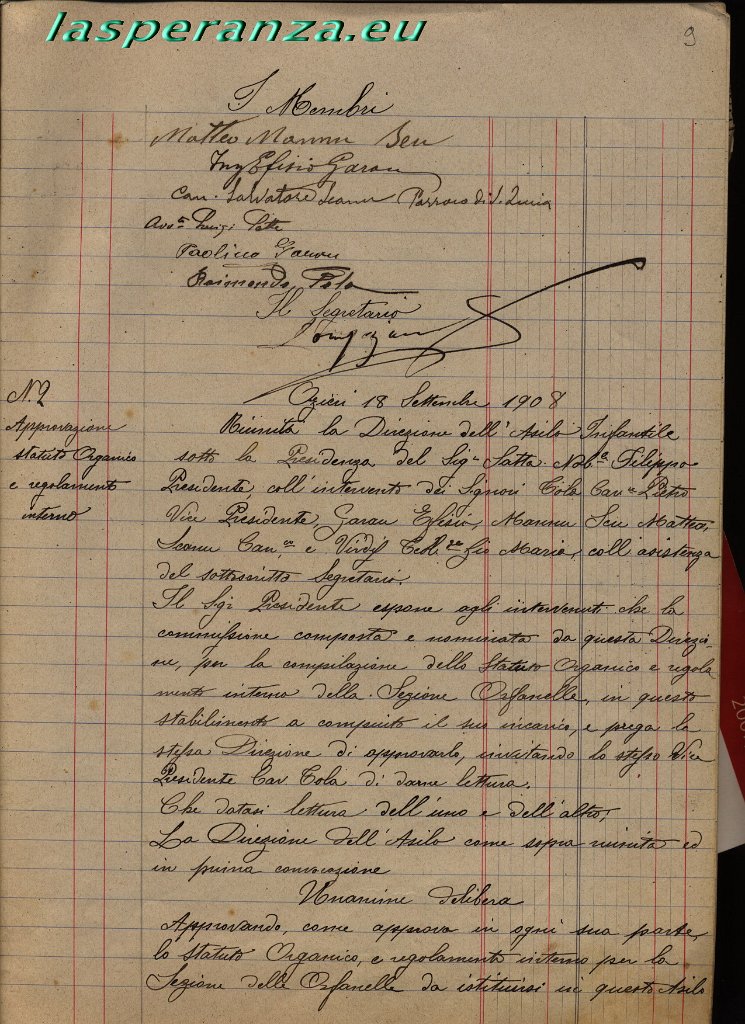 lasperanza.eu
9
I Membri
Matteo Mannu Seu
Ing Efisio Garau
Can. Salvatore Scanu Parroco di S. Lucia
Avv.to Luigi
Paolino Garau
Raimondo Pola
Il Segretario
N. 2
Approvazione
statuto Organico
e regolamento
interno
Ozieri 18 Settembre 1908
Riunita la Direzione dell'Asilo Infantile
sotto la Presidenza del Sigr Satta Nob.e Filippo
Presidente, coll'intervento dei Signori Tola Cav.re Pietro
Vice Presidente, Garau Efisio, Mannu Seu Matteo,
Scanu Can.co e Virdis Maria, coll'asistenza
del sottoscritto Segretario.
Il Sigr Presidente espone agli intervenuti che la
commissione composta e nominata da questa Direzio-
ne, per la compilazione dello Statuto Organico e regola
mento interno della Sezione Orfanelle, in questo
stabilimento a compiuto il suo incarico, e prega la
stessa Direzione di approvarlo, invitando lo stesso Vice
Presidente Cav Tola di darne lettura.
Che datasi lettura dell'uno e dell'altro;
La Direzione dell'Asilo come sopra riunita ed
in prima convocazione
Unanime delibera
Approvando, come approva in ogni sua parte,
lo statuto Organico, e regolamento interno per la
Sezione delle Orfanelle da istituirsi in questo Asilo